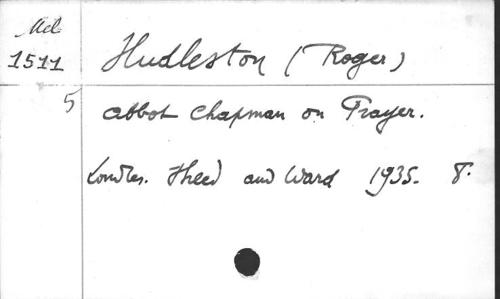 Ad
1511
5
Hudleston (Roger)
Abbot Chapman on Prayer.
Londres. Sheed and Ward 1935. 8°